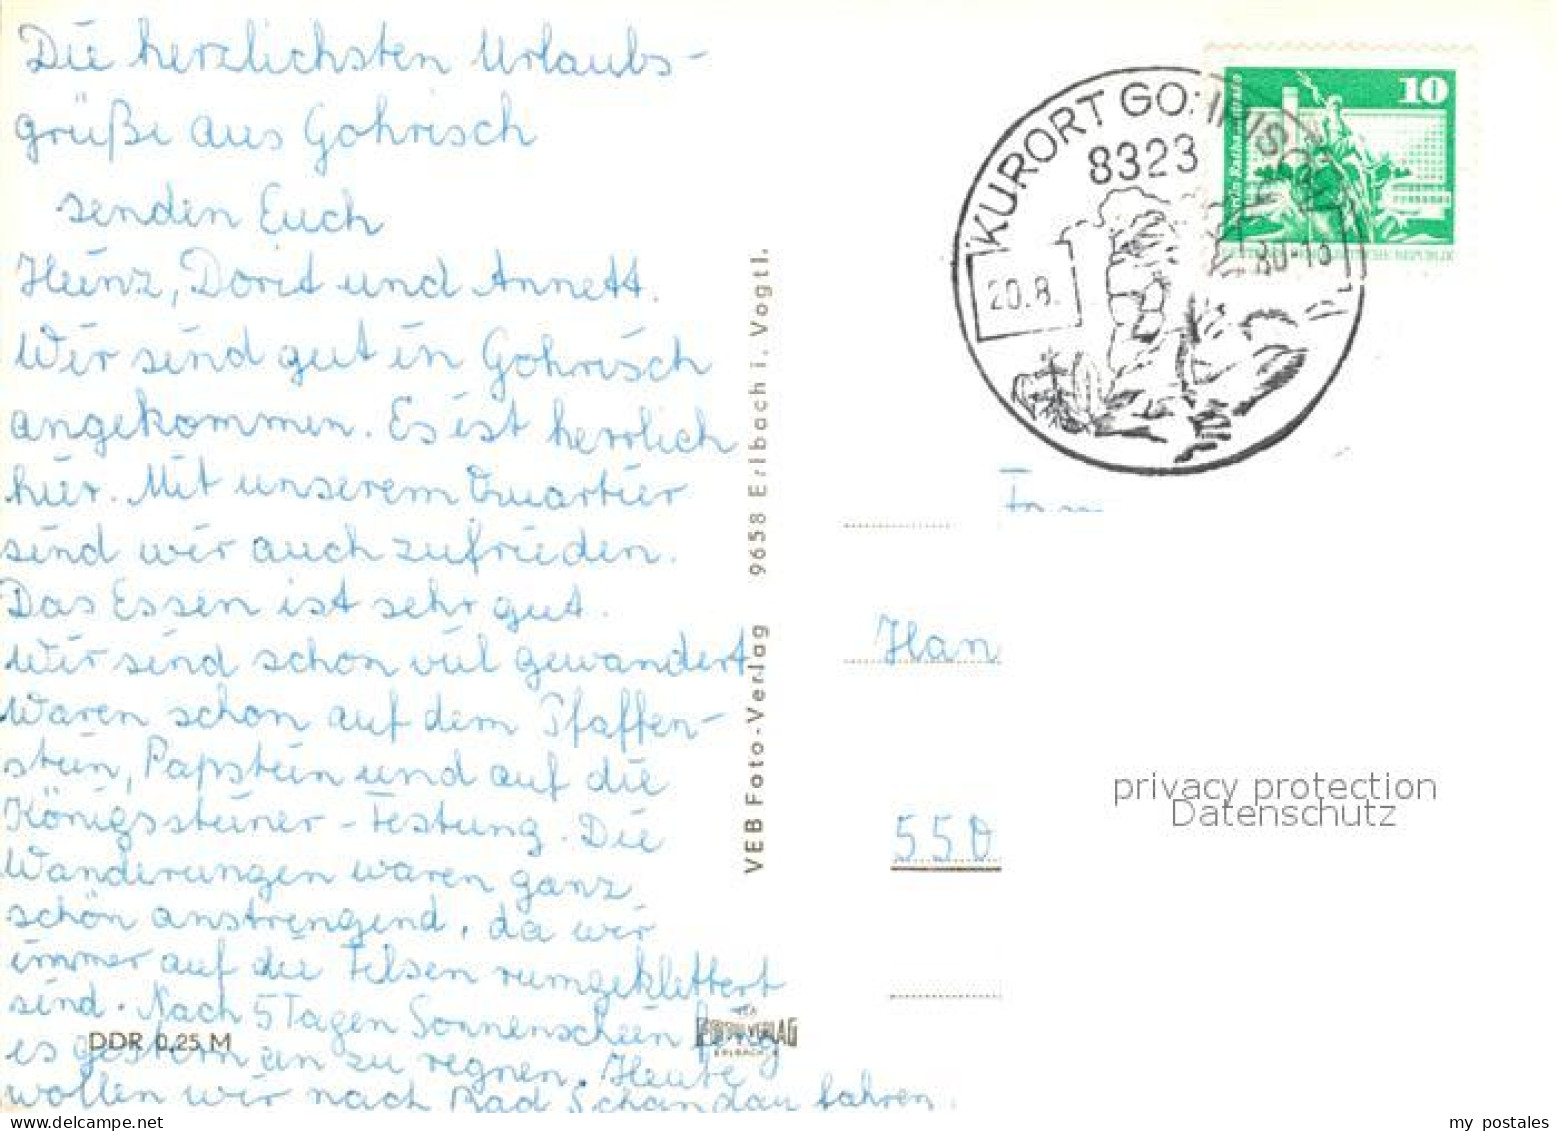 Die herzlichsten Urlaubs-
grüße aus Gohrisch
senden Euch
Heinz, Dorit und Annett.
Wir sind gut in Gohrisch
angekommen. Es ist herrlich
hier. Mit unserem Quartier
sind wir auch zufrieden.
Das Essen ist sehr gut.
Wir sind schon viel gewandert.
Waren schon auf dem Pfaffen-
stein, Papstein und auf die
Königssteiner-Festung. Die
Wanderungen waren ganz
schön anstrengend, da wir
immer auf die Felsen rumgeklettert
sind. Nach 5 Tagen Sonnenschein fing
es gestern an zu regnen. Heute
wollen wir nach Bad Schandau fahren.
DDR 0,25 M
VEB Foto-Verlag 9658 Erlbach i. Vogtl.
FOTO-VERLAG
ERLBACH
KURORT GOHRISCH
8323
20.8. 80-16
10
Berlin-Rathausstraße
Fam
Han
550
privacy protection
Datenschutz
my postales
www.delcampe.net